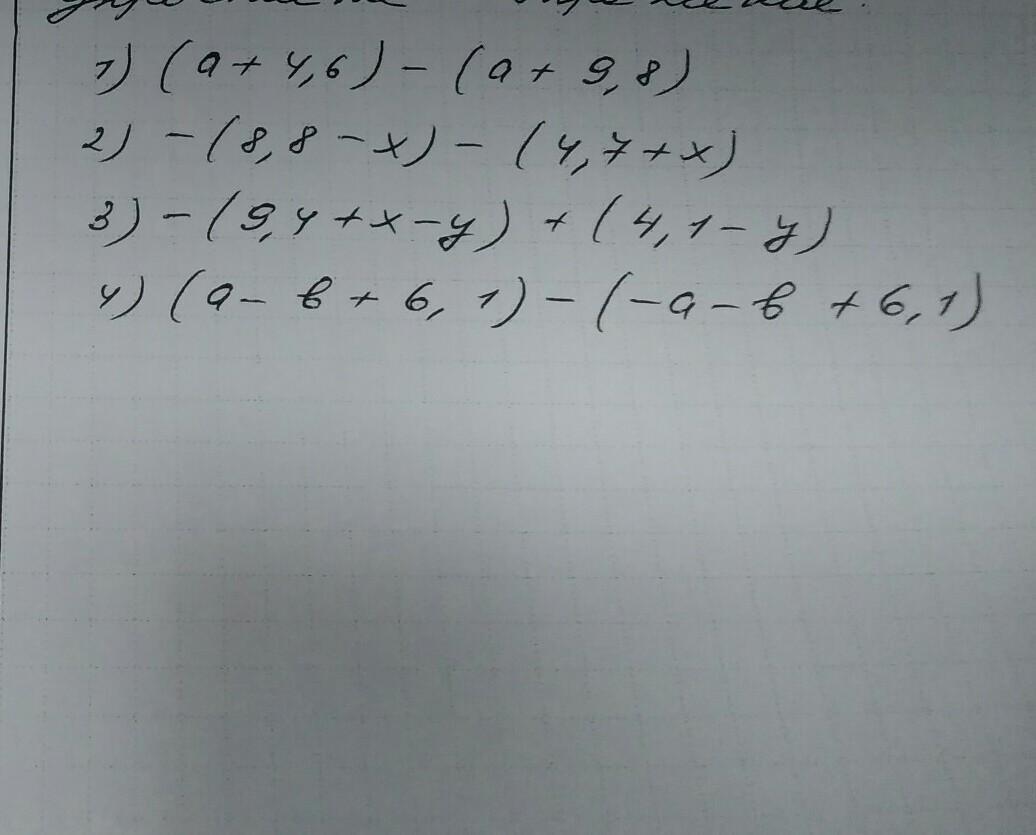 1) (a + 4,6) - (a + 9,8)
2) - (8,8 - x) - (4,7 + x)
3) - (9,4 + x - y) + (4,1 - y)
4) (a - в + 6,1) - (-a - в + 6,1)